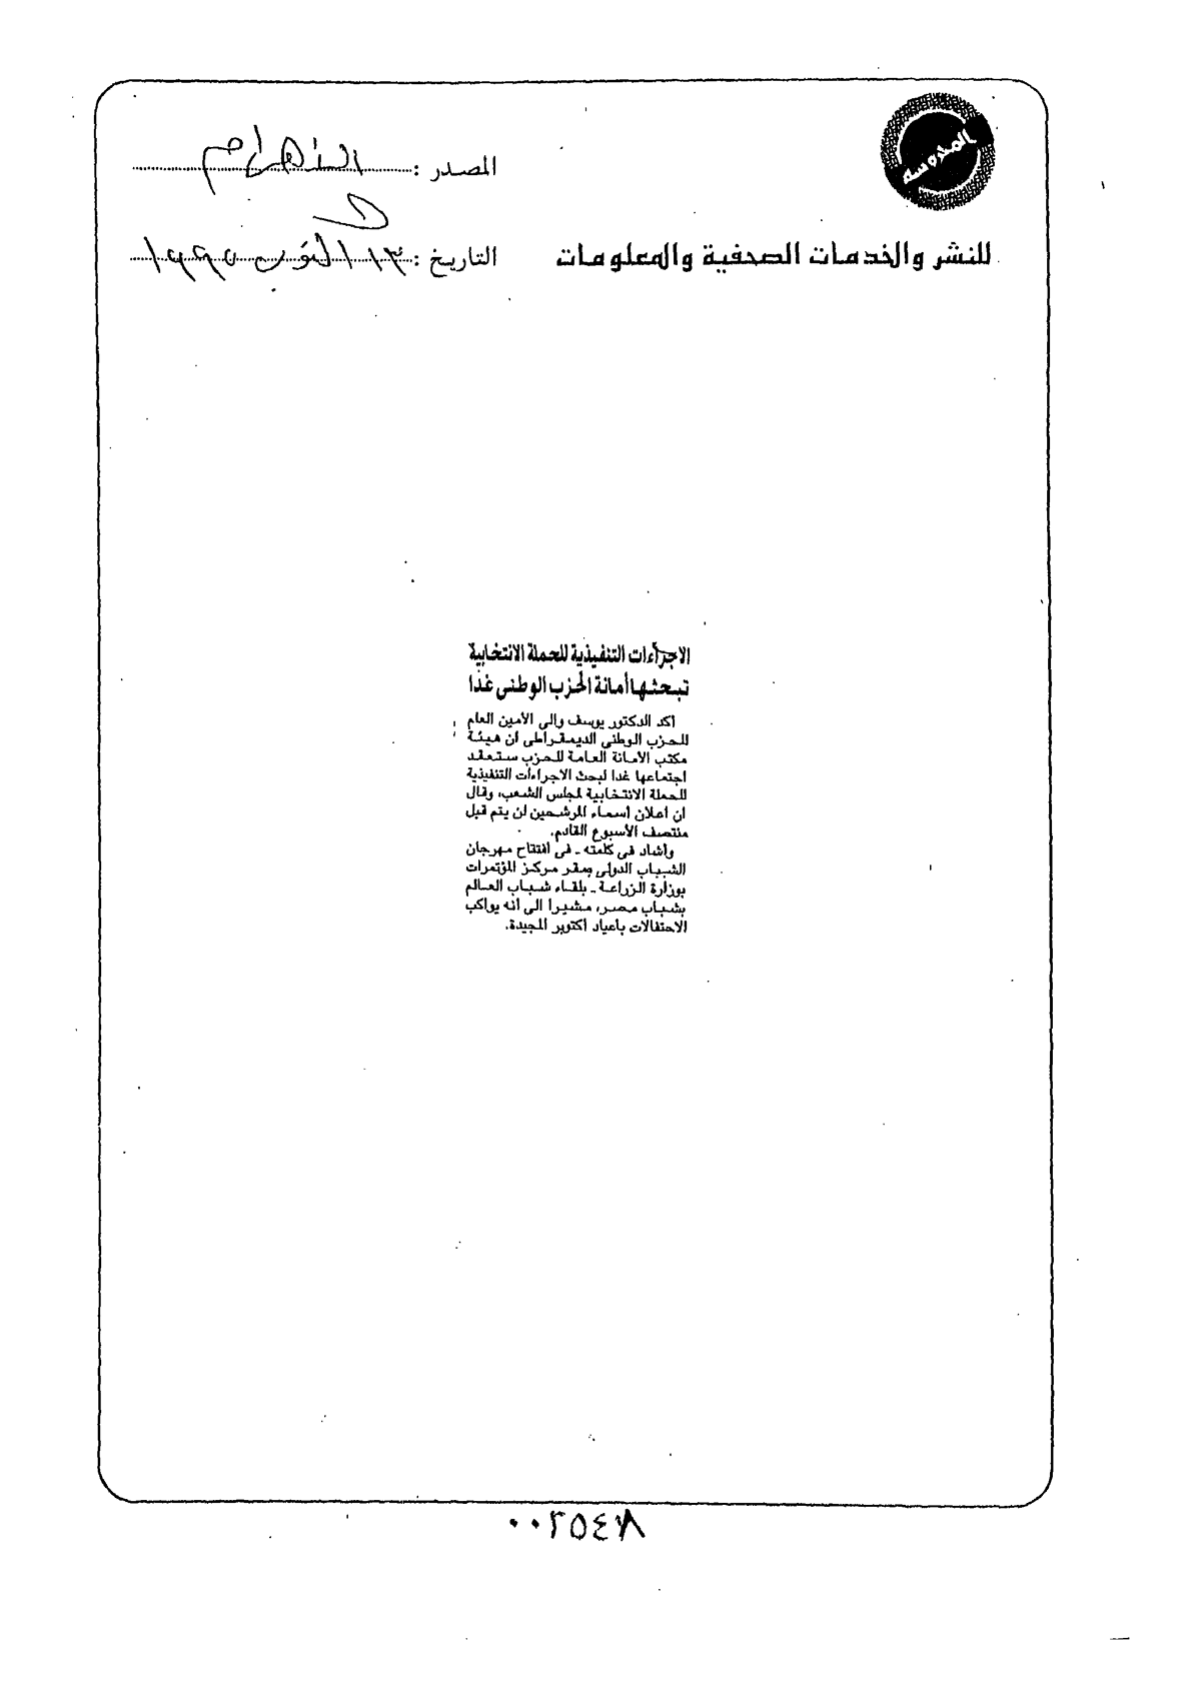 المحروسة
المصدر : الأهرام
للنشر والخدمات الصحفية والمعلومات
التاريخ : ١٣ اكتوبر ١٩٩٥
الاجراءات التنفيذية للحملة الانتخابية
تبحثها أمانة الحزب الوطنى غدا
أكد الدكتور يوسف والى الأمين العام
للحزب الوطنى الديمقراطى ان هيئة
مكتب الأمانة العامة للحزب ستعقد
اجتماعها غدا لبحث الاجراءات التنفيذية
للحملة الانتخابية لمجلس الشعب، وقال
ان اعلان أسماء المرشحين لن يتم قبل
منتصف الأسبوع القادم.
وأشاد فى كلمته ـ فى افتتاح مهرجان
الشباب الدولى بمقر مركز المؤتمرات
بوزارة الزراعة ـ بلقاء شباب العالم
بشباب مصر، مشيرا الى انه يواكب
الاحتفالات بأعياد أكتوبر المجيدة.